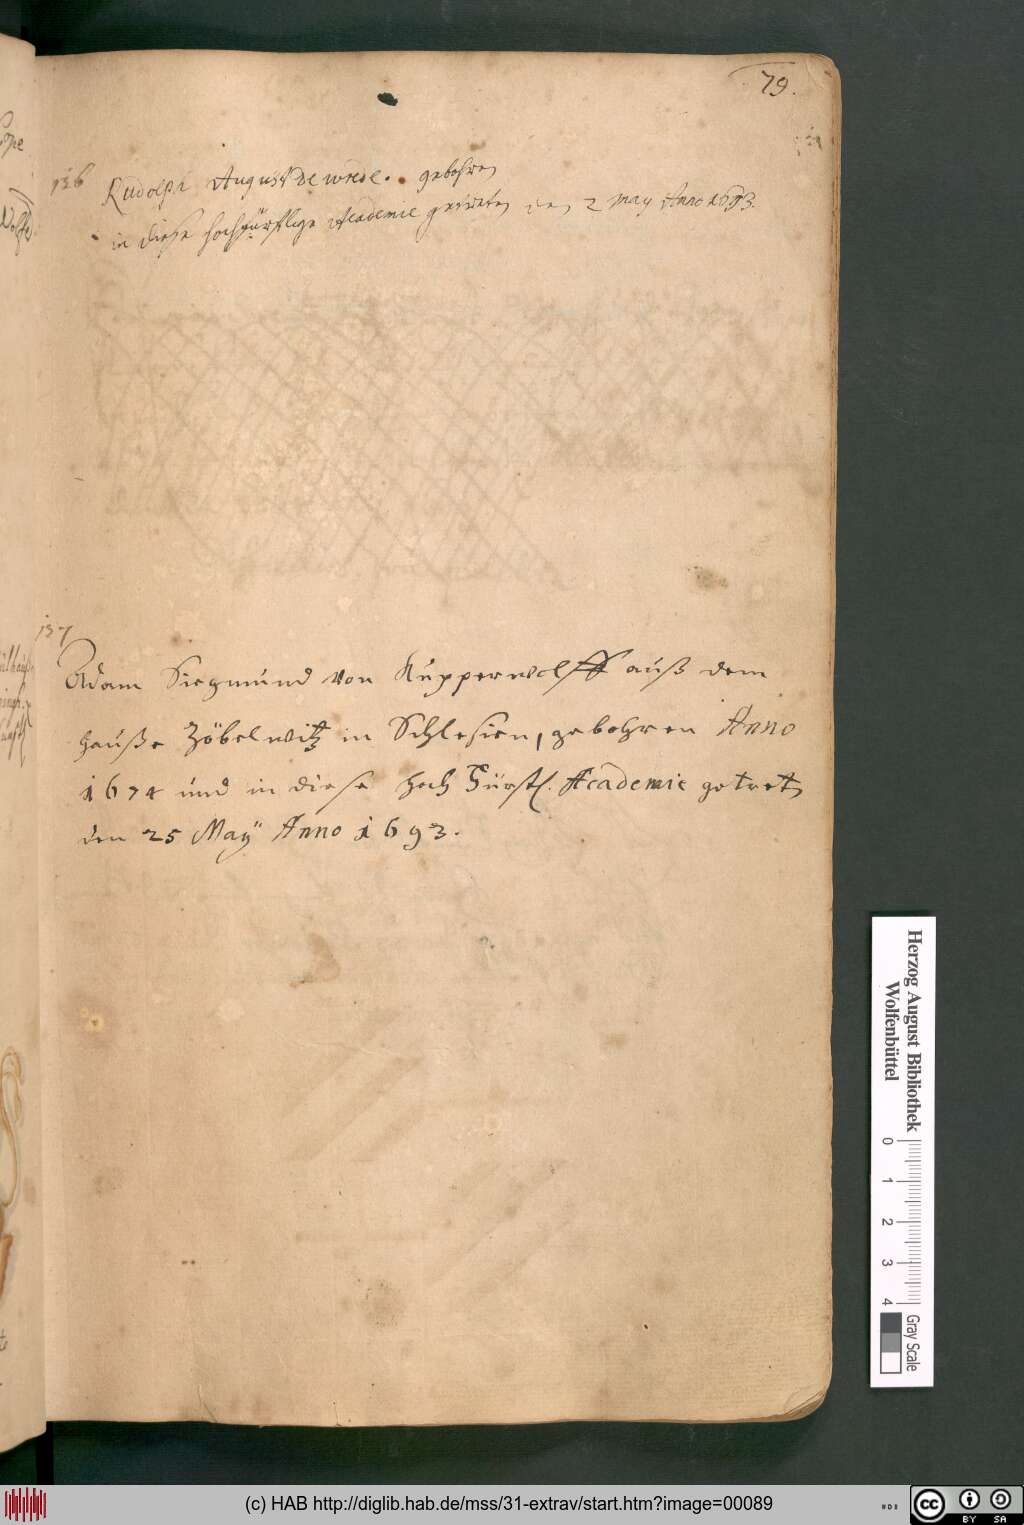 79.
136
Rudolph August de wrede. gebohren
in diese hochfürstliche Academie getreten den 2 may Anno 1693.
137
Adam Siegmund von Kupperwolff auß dem
hauße Zöbelwitz in Schlesien, gebohren Anno
1674 und in diese Hoch Fürstl. Academie getret
den 25 Maÿ Anno 1693.
Herzog August Bibliothek
Wolfenbüttel
0 1 2 3 4
Gray Scale
(c) HAB http://diglib.hab.de/mss/31-extrav/start.htm?image=00089
cc BY SA